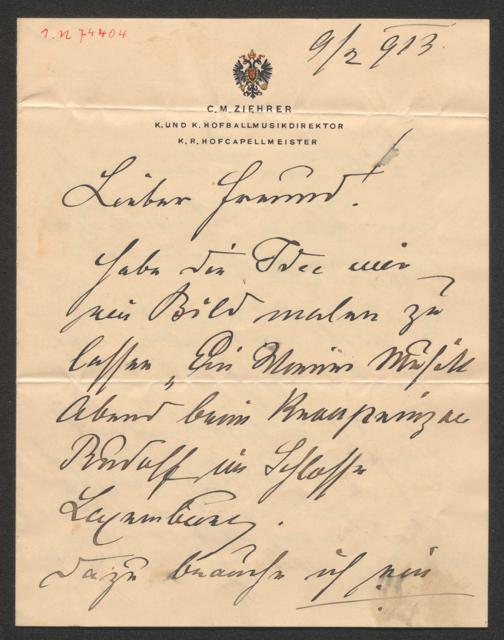 I. N 74404
9/2 913.
C. M. ZIEHRER
K. UND K. HOFBALLMUSIKDIREKTOR
K. R. HOFCAPELLMEISTER
Lieber Freund!
habe die Idee mir
ein Bild malen zu
lassen „Ein Wiener Musik
Abend beim Kronprinzen
Rudolf im Schlosse
Laxenburg.
dazu brauche ich ein